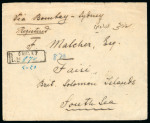 Via Bombay - Sydney
Registered
F. Matcher, Esq.
Faisi
Brit. Solomon Islands
South Sea